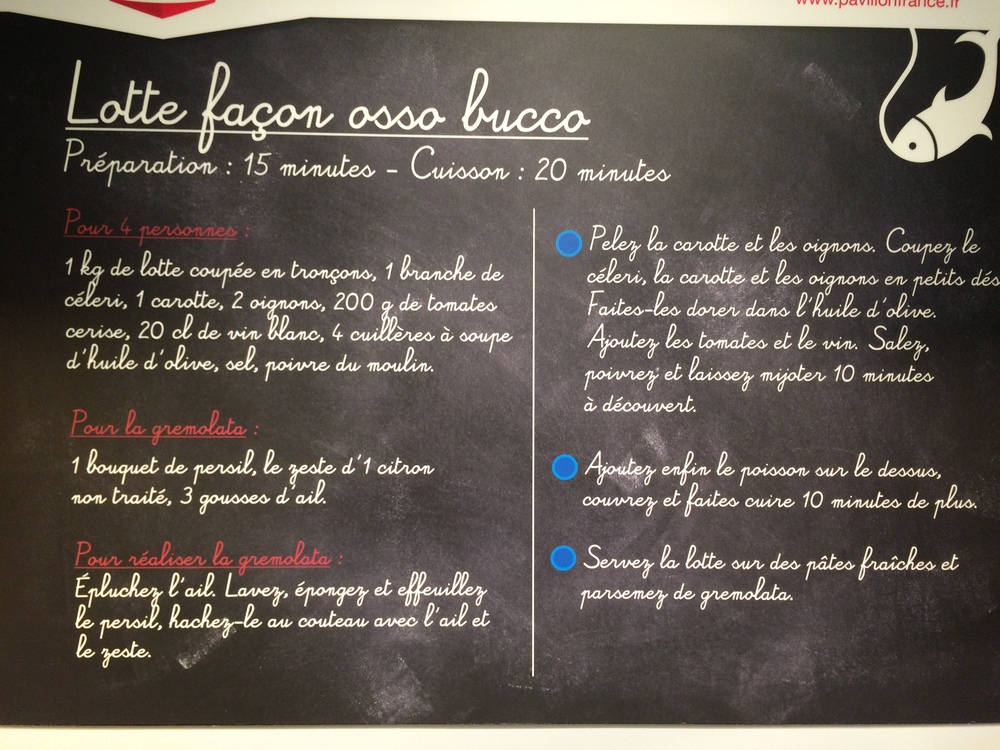 www.pavillonfrance.fr
Lotte façon osso bucco
Préparation : 15 minutes - Cuisson : 20 minutes
Pour 4 personnes :
1 kg de lotte coupée en tronçons, 1 branche de
céleri, 1 carotte, 2 oignons, 200 g de tomates
cerise, 20 cl de vin blanc, 4 cuillères à soupe
d'huile d'olive, sel, poivre du moulin.
Pour la gremolata :
1 bouquet de persil, le zeste d'1 citron
non traité, 3 gousses d'ail.
Pour réaliser la gremolata :
Épluchez l'ail. Lavez, épongez et effeuillez
le persil, hachez-le au couteau avec l'ail et
le zeste.
Pelez la carotte et les oignons. Coupez le
céleri, la carotte et les oignons en petits dés
Faites-les dorer dans l'huile d'olive.
Ajoutez les tomates et le vin. Salez,
poivrez et laissez mijoter 10 minutes
à découvert.
Ajoutez enfin le poisson sur le dessus,
couvrez et faites cuire 10 minutes de plus.
Servez la lotte sur des pâtes fraîches et
parsemez de gremolata.